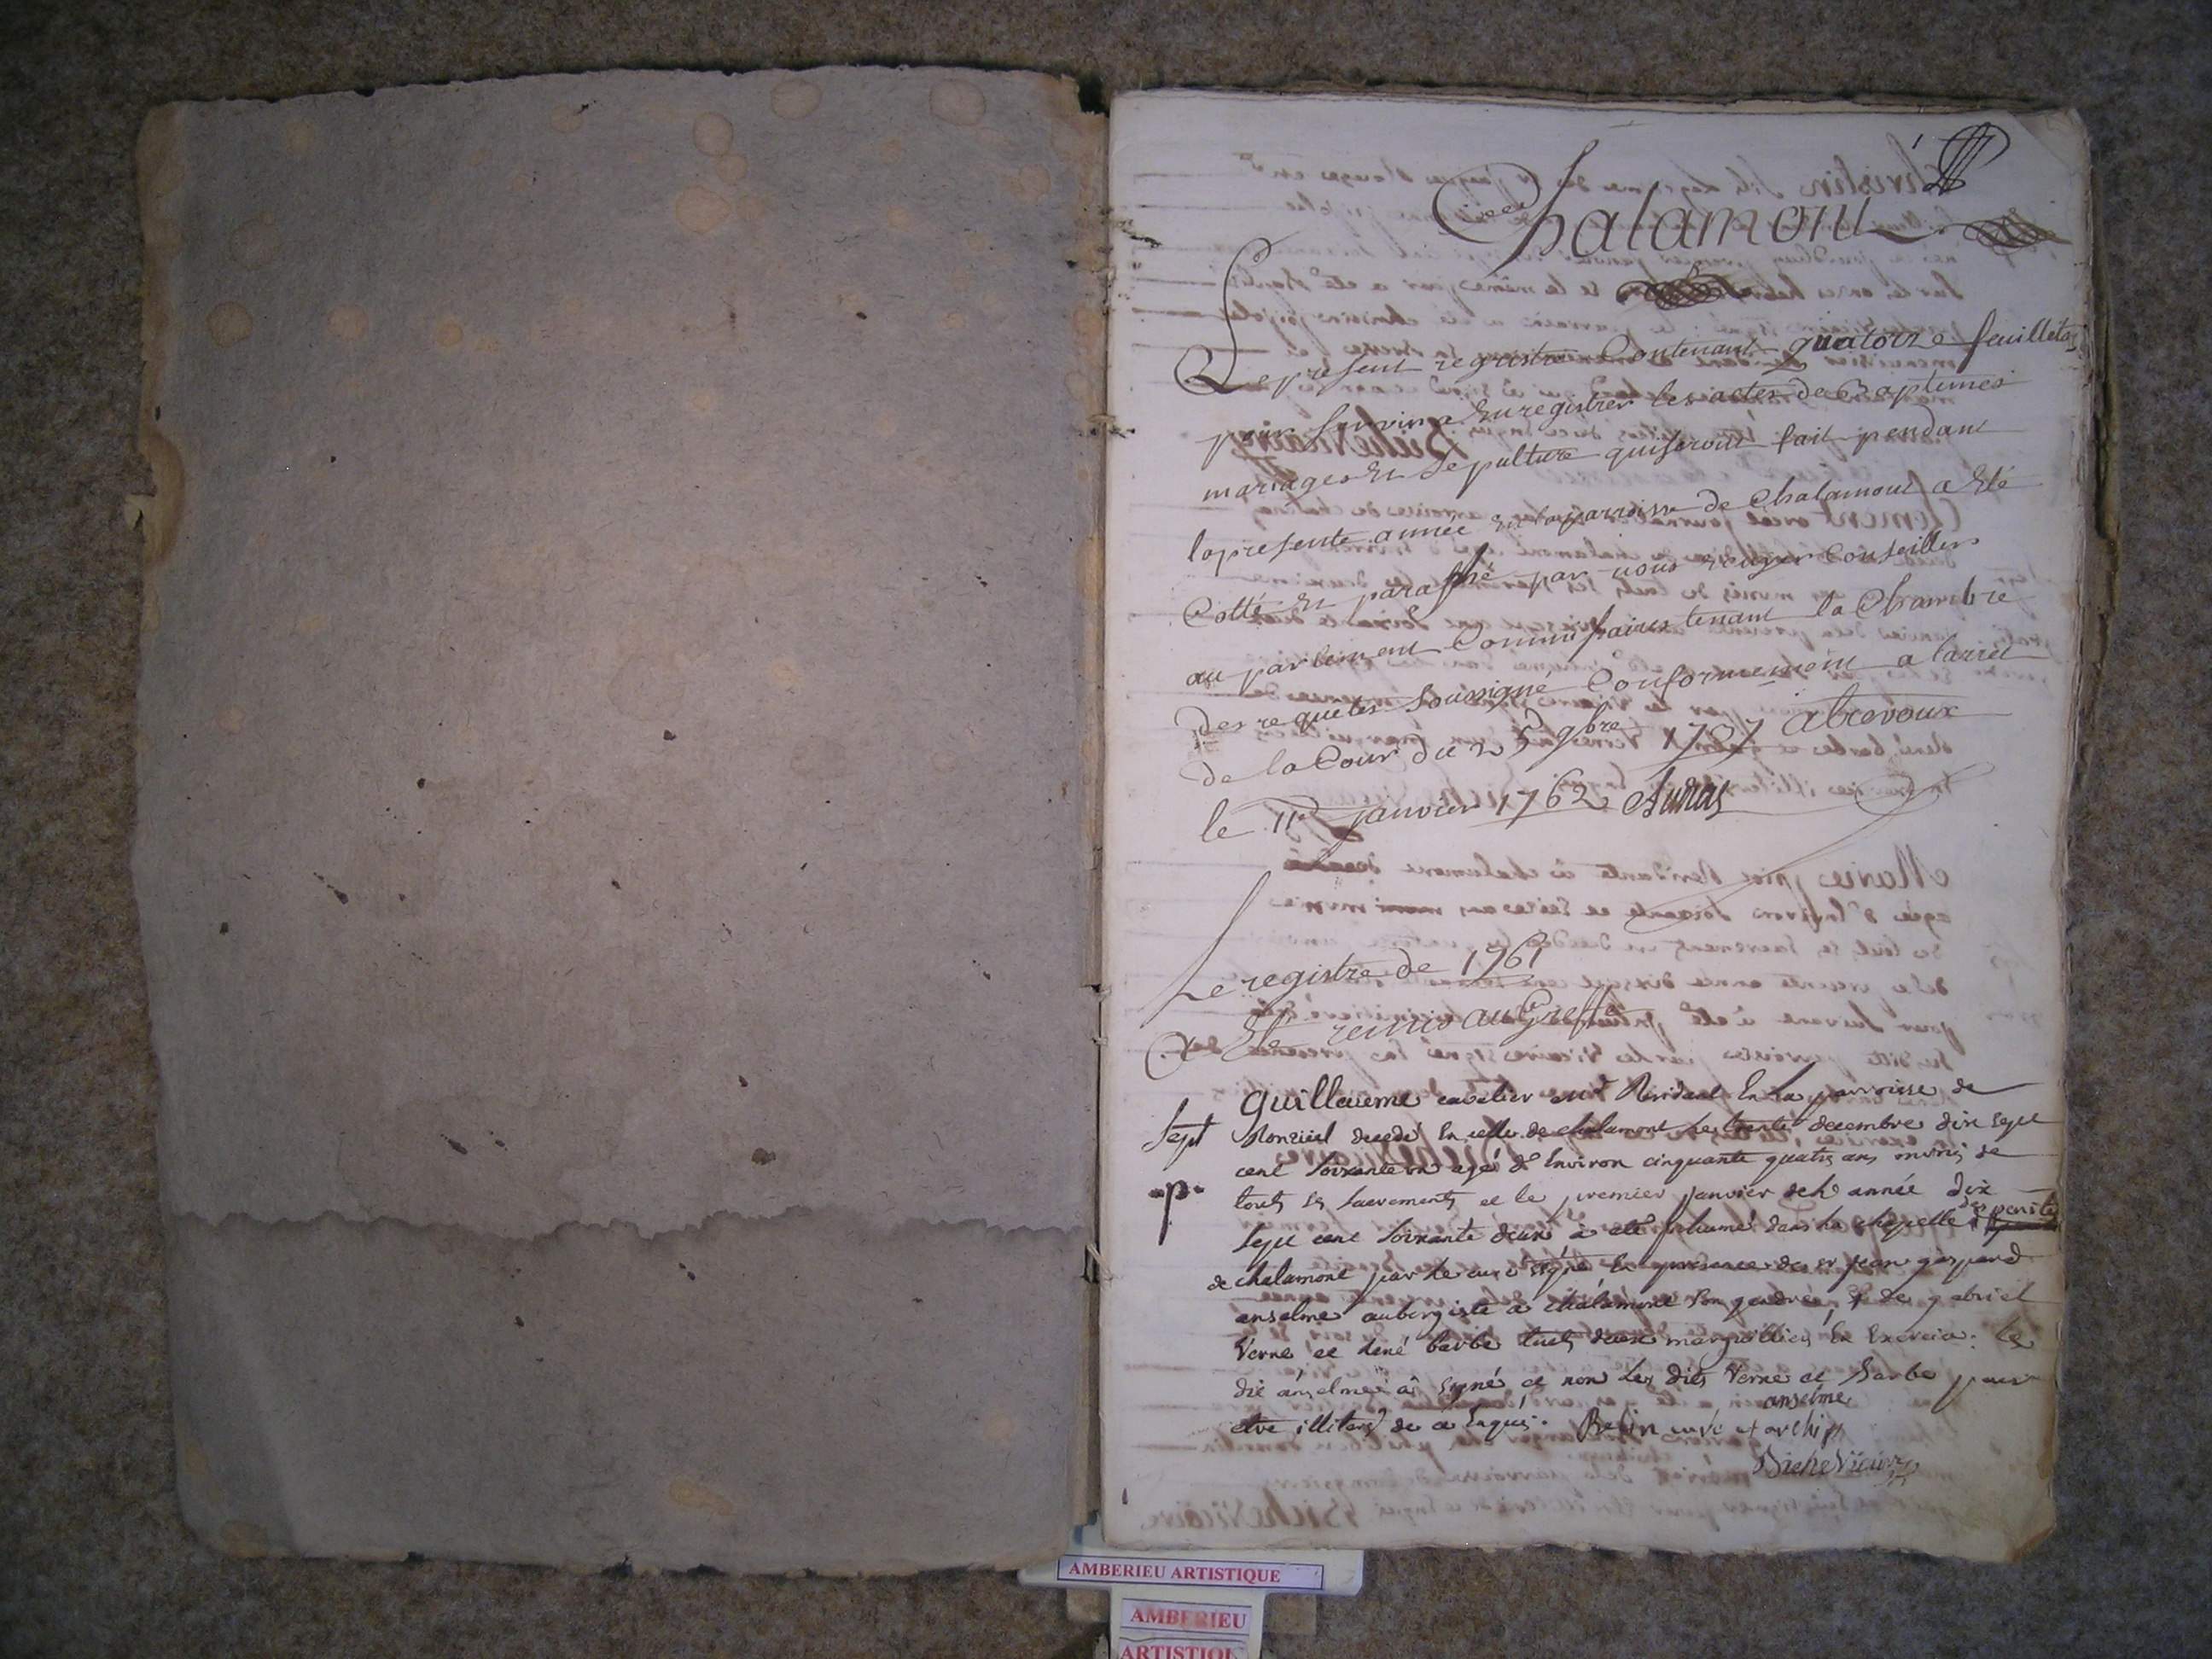 1
Chalamont
Le present registre Contenant quatorze feuillets
pour servir a Enregistrer les actes de Baptemes
mariages Et Sepulture qui seront fait pendant
la presente année En la parroisse de Chalamont a Eté
Cotté Et paraphé par nous Conseillers
au parlement Commissaires tenant la Chambre
des requetes soussigné Conformement a larret
de la Cour du 25 9bre 1757 a trevoux
le 11e janvier 1762
Le registre de 1761
a Eté remis au Greffe
guillaume cavelier Resident En la parroisse de
Sept Ronzuel decedé En celle de chalamont le trente decembre dix sept
cent soixante un agé d'Environ cinquante quatre ans munis de
p.
tout les sacrements et le premier janvier de l'année dix
sept cent soixante deux à eté Inhumé dans la chapelle des penite
de chalamont par le curé signé En presence de sr jean gaspard
anselme aubergiste a chalamont son gendre, & de gabriel
Verne et René barbe tous deux marguilliers En Exercice: le
dit anselme a signé et non les dits Verne et Barbe pour
anselme
etre illiteré de ce Enquis. Belin curé et archip
Biche Vicaire
AMBERIEU ARTISTIQUE
AMBERIEU